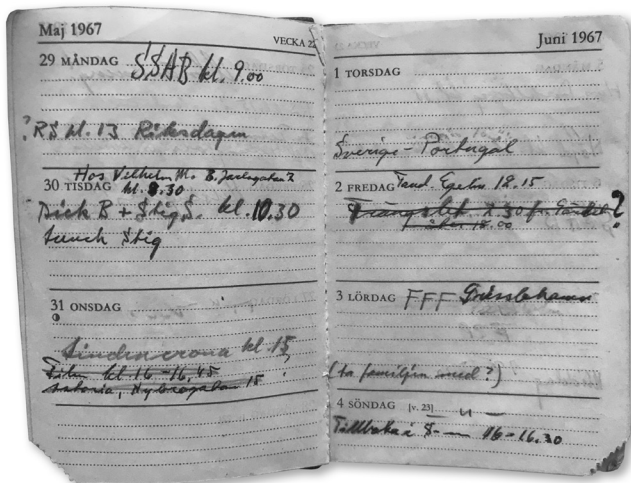 Maj 1967
VECKA 22
29 MÅNDAG SSAB kl. 9.00
? RS kl. 13 Riksdagen
Hos Vilhelm M. B. Jarlsgatan 2
30 TISDAG kl. 8.30
Dick B + Stig S. kl. 10.30
lunch Stig
31 ONSDAG
Lindencrona kl. 15
Film kl 16-16.45
Nybrogatan 15
Juni 1967
1 TORSDAG
Sverige - Portugal
2 FREDAG Tand. 12.15
Trängslet 7.30 fr. ?
åter 18.00
3 LÖRDAG FFF Grisslehamn
(ta familjen med?)
4 SÖNDAG [v. 23] — " —
Tillbaka i S— 16-16.30